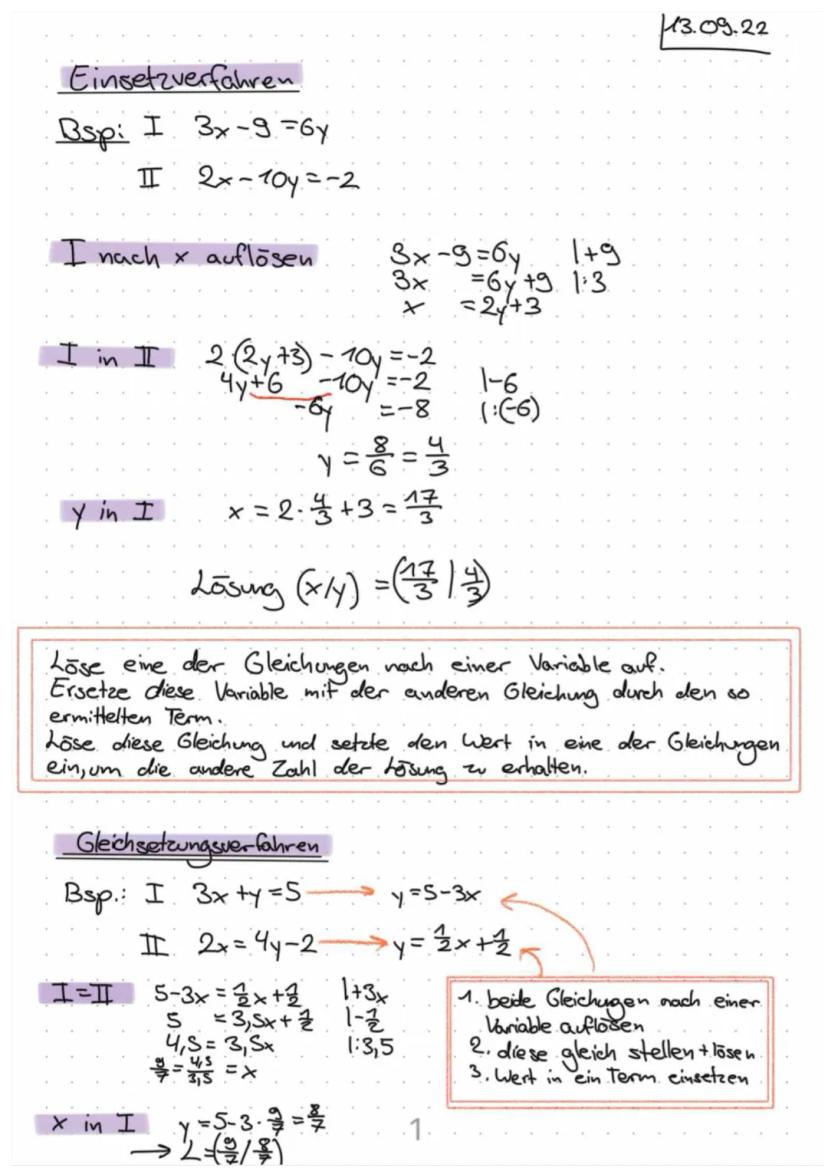 13.09.22
Einsetzverfahren
Bsp: I 3x-9=6y
II 2x-10y=-2
I nach x auflösen 3x-9=6y |+9
3x =6y+9 |:3
x =2y+3
I in II 2(2y+3)-10y=-2
4y+6 -10y=-2 |-6
-6y =-8 |:(-6)
y = 8/6 = 4/3
y in I x = 2·4/3+3 = 17/3
Lösung (x/y) = (17/3 | 4/3)
Löse eine der Gleichungen nach einer Variable auf.
Ersetze diese Variable mit der anderen Gleichung durch den so
ermittelten Term.
Löse diese Gleichung und setzte den Wert in eine der Gleichungen
ein, um die andere Zahl der Lösung zu erhalten.
Gleichsetzungsverfahren
Bsp.: I 3x+y=5 → y=5-3x
II 2x=4y-2 → y=1/2x+1/2
I=II 5-3x=1/2x+1/2 |+3x
5 =3,5x+1/2 |-1/2
4,5=3,5x |:3,5
9/7=4,5/3,5=x
1. beide Gleichungen nach einer
Variable auflösen
2. diese gleich stellen+lösen
3. Wert in ein Term einsetzen
x in I y=5-3·9/7=8/7
→ L=(9/7/8/7)
1